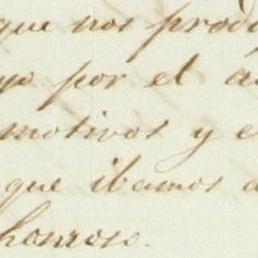 que nos prod
yo por el a
motivos y e
que ibamos a
honroso.